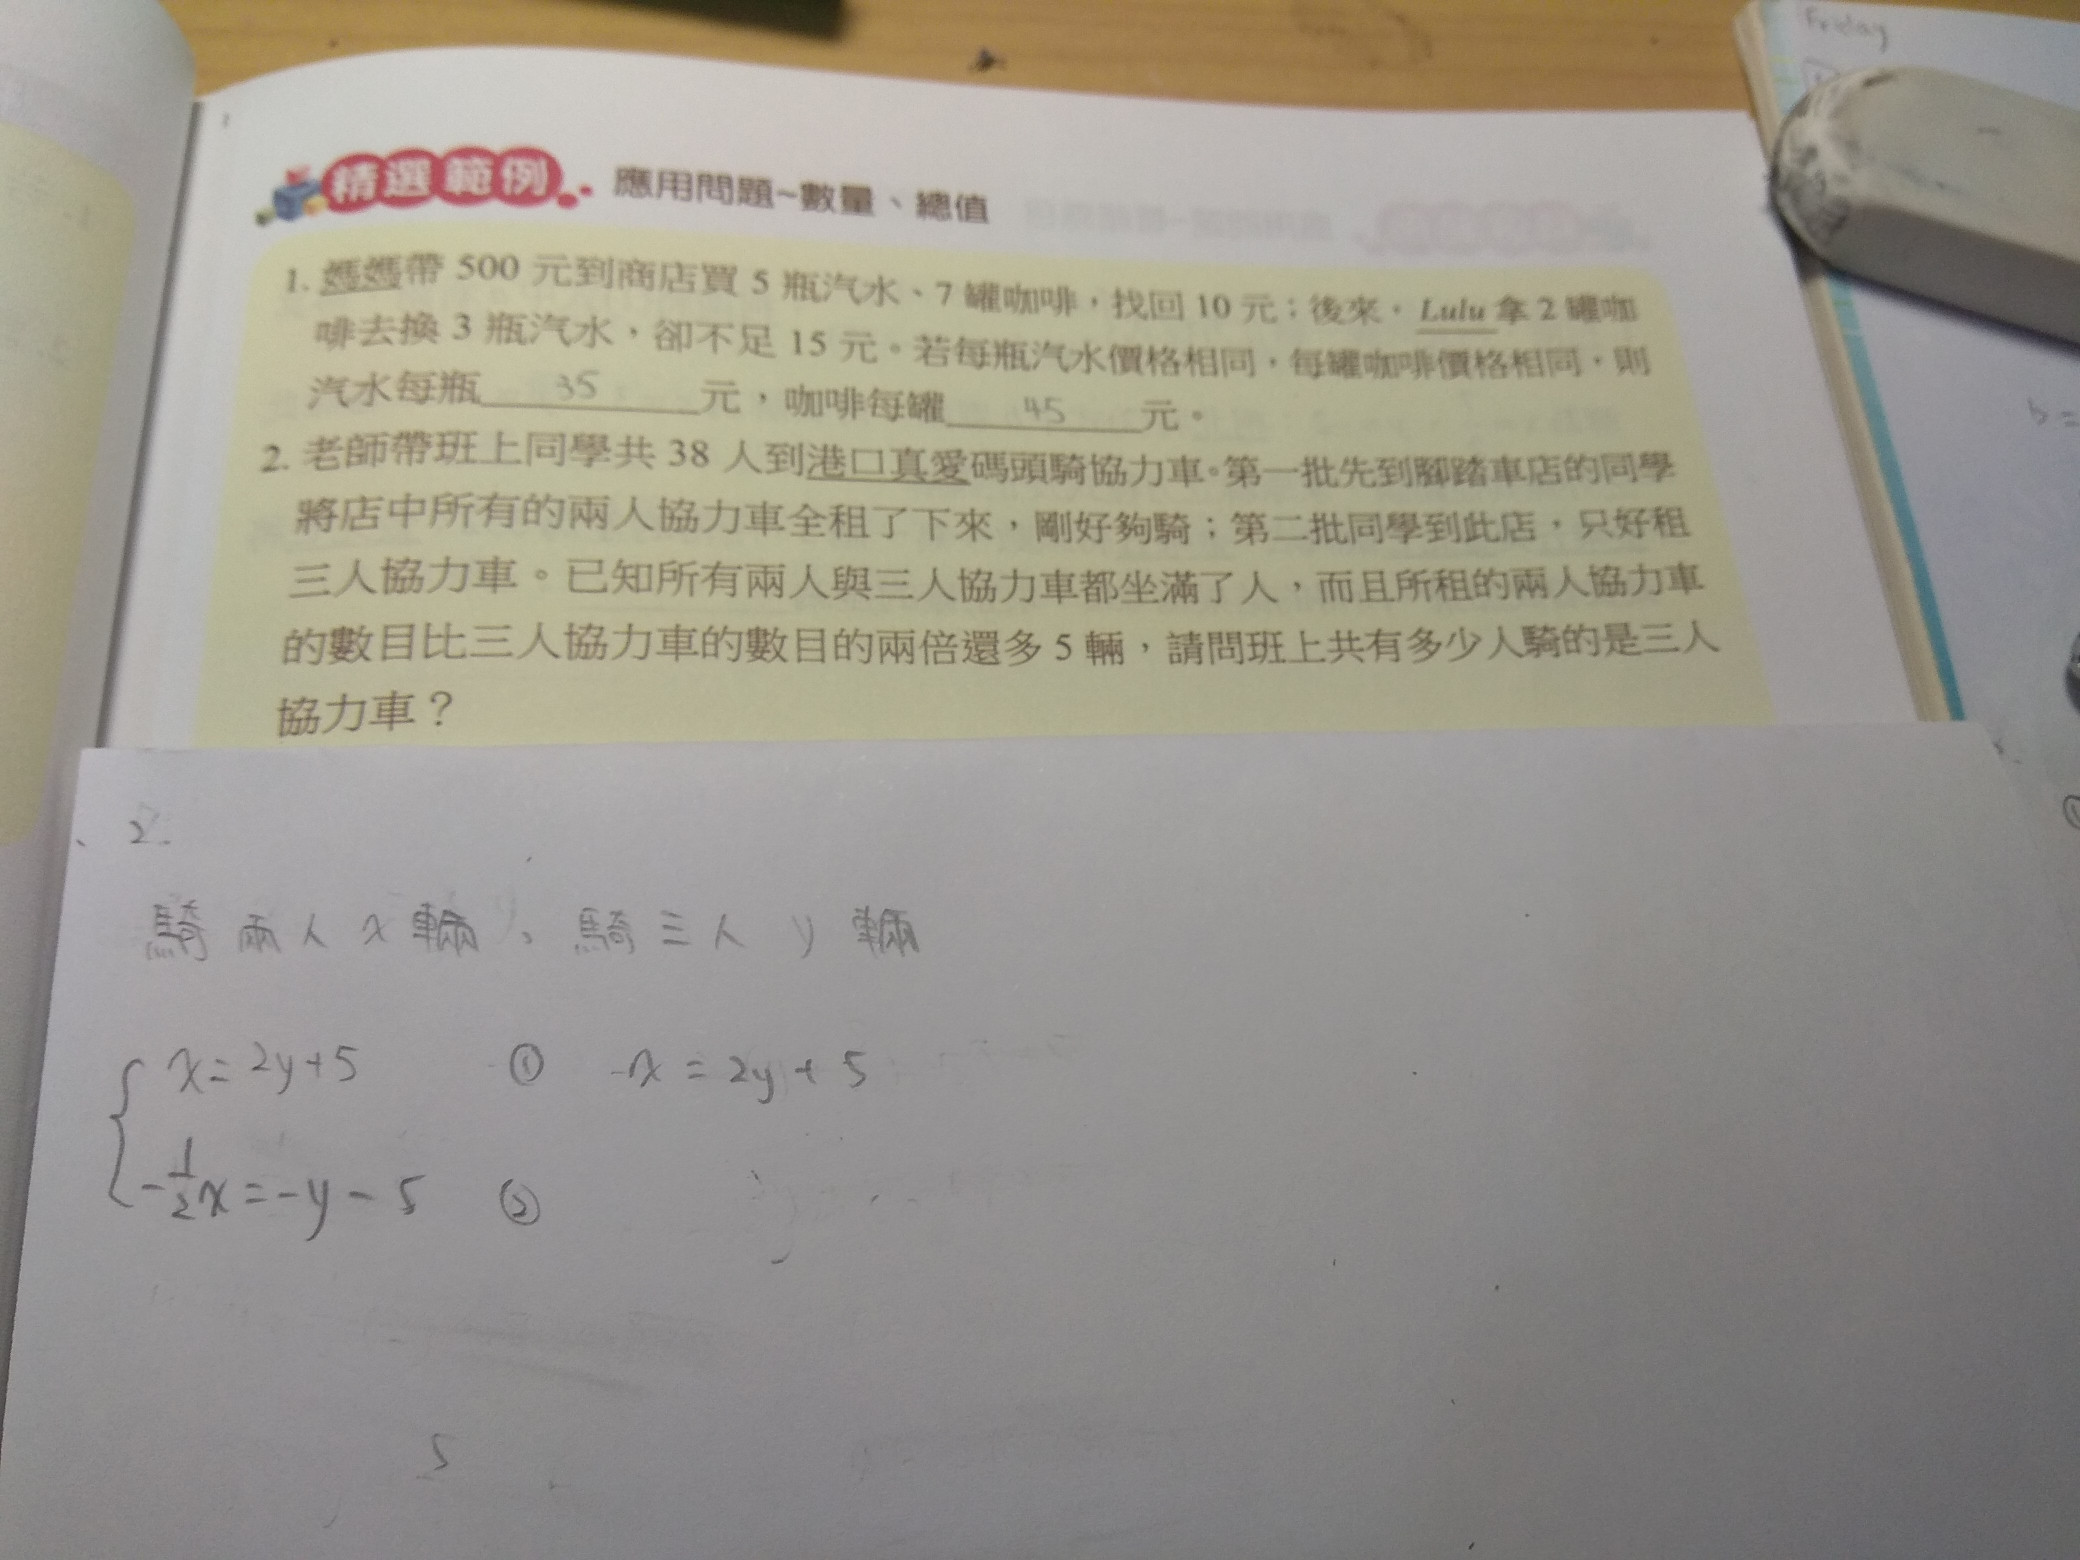 Friday
精選範例 應用問題~數量、總值
1. 媽媽帶 500 元到商店買 5 瓶汽水、7 罐咖啡，找回 10 元；後來，Lulu 拿 2 罐咖
啡去換 3 瓶汽水，卻不足 15 元。若每瓶汽水價格相同，每罐咖啡價格相同，則
汽水每瓶 35 元，咖啡每罐 45 元。
b=
2. 老師帶班上同學共 38 人到港口真愛碼頭騎協力車。第一批先到腳踏車店的同學
將店中所有的兩人協力車全租了下來，剛好夠騎；第二批同學到此店，只好租
三人協力車。已知所有兩人與三人協力車都坐滿了人，而且所租的兩人協力車
的數目比三人協力車的數目的兩倍還多 5 輛，請問班上共有多少人騎的是三人
協力車？
2.
騎兩人 x 輛、騎三人 y 輛
x=2y+5 ① -x=2y+5
-1/2x=-y-5 ②
5